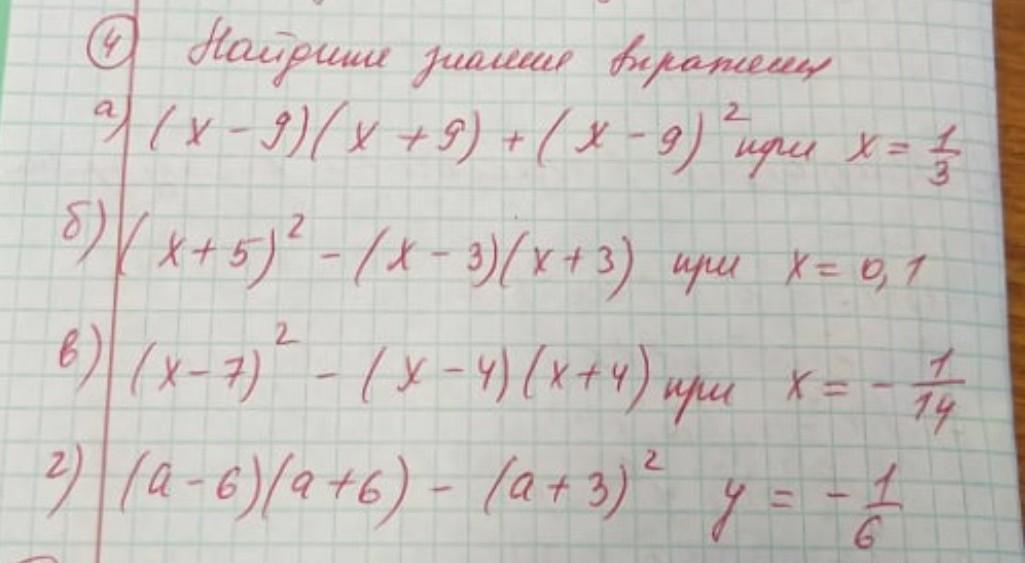 4 Найдите значение выражения
а) (x - 9)(x + 9) + (x - 9)² при x = 1/3
б) (x + 5)² - (x - 3)(x + 3) при x = 0,1
в) (x - 7)² - (x - 4)(x + 4) при x = - 1/14
г) (a - 6)(a + 6) - (a + 3)² y = - 1/6